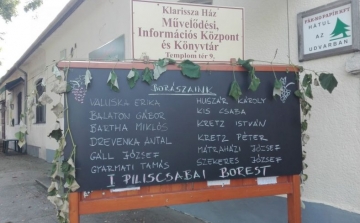 Klarissza Ház
Művelődési,
Információs Központ
és Könyvtár
Templom tér 9.
HÁTUL AZ
UDVARBAN
BORÁSZAINK
VALUSKA ERIKA
BALATON GÁBOR
BARTHA MIKLÓS
DREVENKA ANTAL
GÁLL JÓZSEF
GYARMATI TAMÁS
HUSZÁR KÁROLY
KIS CSABA
KRETZ ISTVÁN
KRETZ PÉTER
MÁTRAHÁZI JÓZSEF
SZEKERES JÓZSEF
I PILISCSABAI BOREST